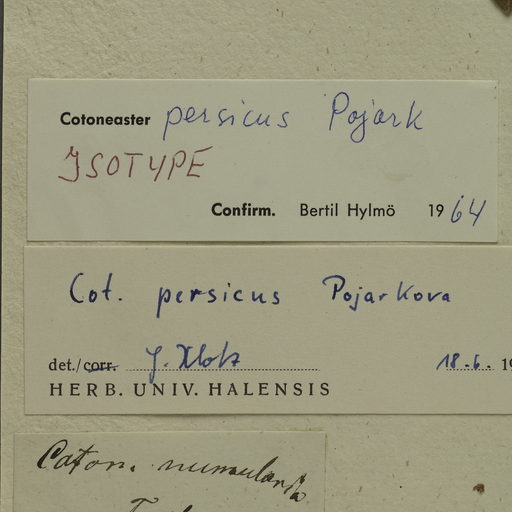 Cotoneaster persicus Pojark
ISOTYPE
Confirm. Bertil Hylmö 1964
Cot. persicus Pojarkova
det./corr. G. Klotz 18.6. 19
HERB. UNIV. HALENSIS
Coton. nummularia